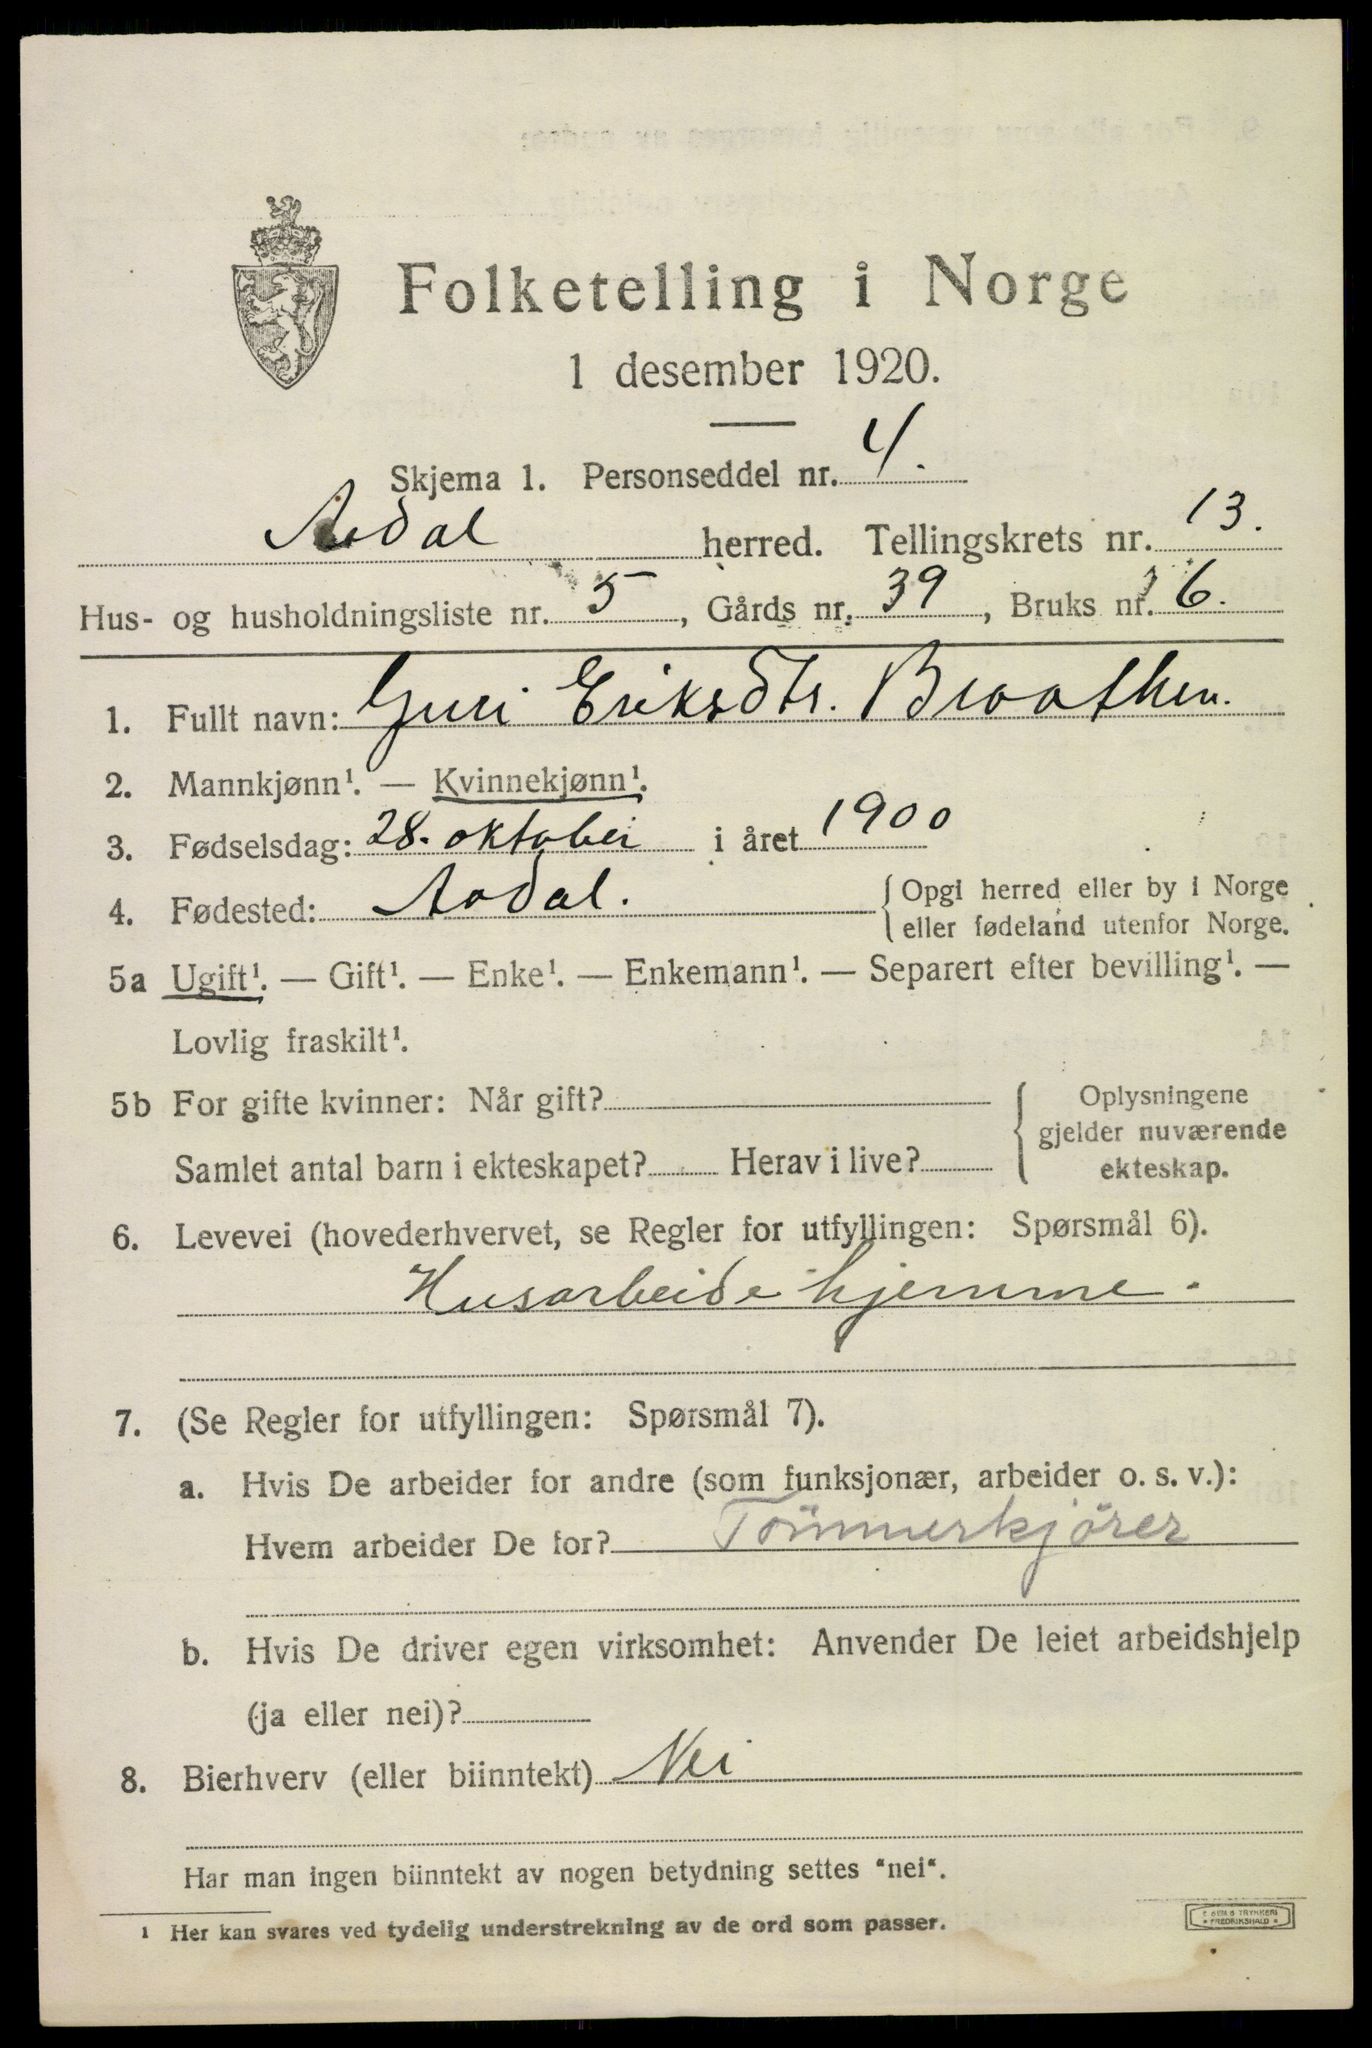 Folketelling i Norge
1 desember 1920.
Skjema 1. Personseddel nr. 4.
Aadal herred. Tellingskrets nr. 13.
Hus- og husholdningsliste nr. 5, Gårds nr. 39, Bruks nr. 6.
1. Fullt navn: Guri Eriksdtr. Braathen.
2. Mannkjønn¹. — Kvinnekjønn¹.
3. Fødselsdag: 28. oktober i året 1900
4. Fødested: Aadal. Opgi herred eller by i Norge
eller fødeland utenfor Norge.
5a Ugift¹. — Gift¹. — Enke¹. — Enkemann¹. — Separert efter bevilling¹. —
Lovlig fraskilt¹.
5b For gifte kvinner: Når gift? Oplysningene
gjelder nuværende
Samlet antal barn i ekteskapet? Herav i live? ekteskap.
6. Levevei (hovederhvervet, se Regler for utfyllingen: Spørsmål 6).
Husarbeide hjemme.
7. (Se Regler for utfyllingen: Spørsmål 7).
a. Hvis De arbeider for andre (som funksjonær, arbeider o. s. v.):
Hvem arbeider De for? Tömmerkjörer
b. Hvis De driver egen virksomhet: Anvender De leiet arbeidshjelp
(ja eller nei)?
8. Bierhverv (eller biinntekt) Nei
Har man ingen biinntekt av nogen betydning settes "nei".
¹ Her kan svares ved tydelig understrekning av de ord som passer.
TRYKKERI
FREDRIKSHALD